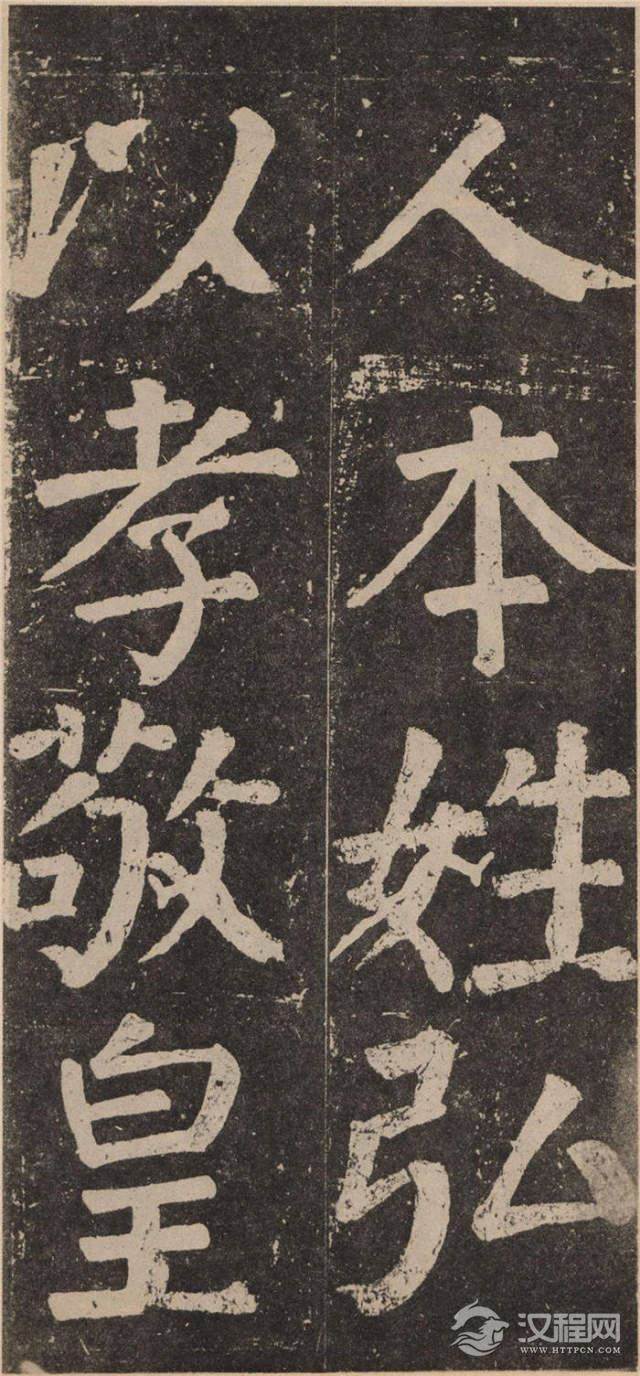 人本姓弘
以孝敬皇
汉程网
WWW.HTTPCN.COM